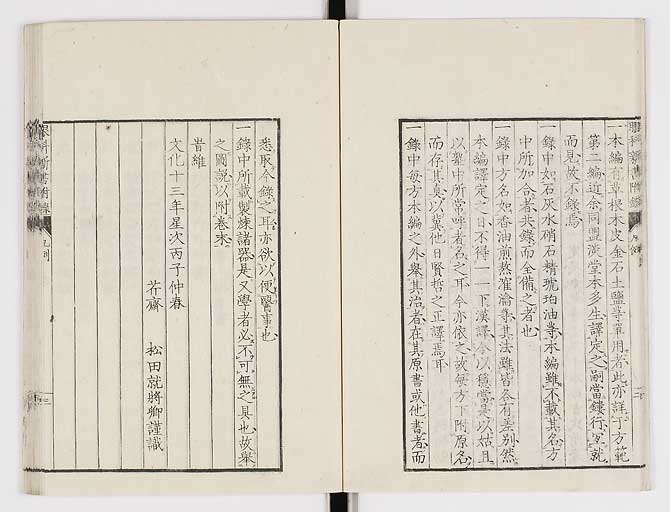 眼科新書附録 凡例
一本編有草根木皮金石土鹽等單用者此亦詳于方範
第二編近余同盟漢堂本多生譯定之嗣當鏤行宜就
而見故不錄焉
一錄中如石灰水硝石精琥珀油等本編雖不載其名方
中所加合者共錄而全備之者也
一錄中方名如香油煎蒸淮淪等其法雖皆各有差別然
本編譯定之日不得一一下漢譯今以穩當是以姑且
以藥中所常呼者名之耳今亦依之故每方下附原名
而存其真以冀他日賢哲之正譯焉耳
一錄中每方本編之外舉其治者在其原書或他書者而
悉取今錄之耳亦欲以便醫事也
一錄中所載製煉諸器是又學者必不可無之具也故舉
之圖說以附卷末
旹維
文化十三年星次丙子仲春
芥齋 松田就將卿謹識
眼科新書附録 凡例